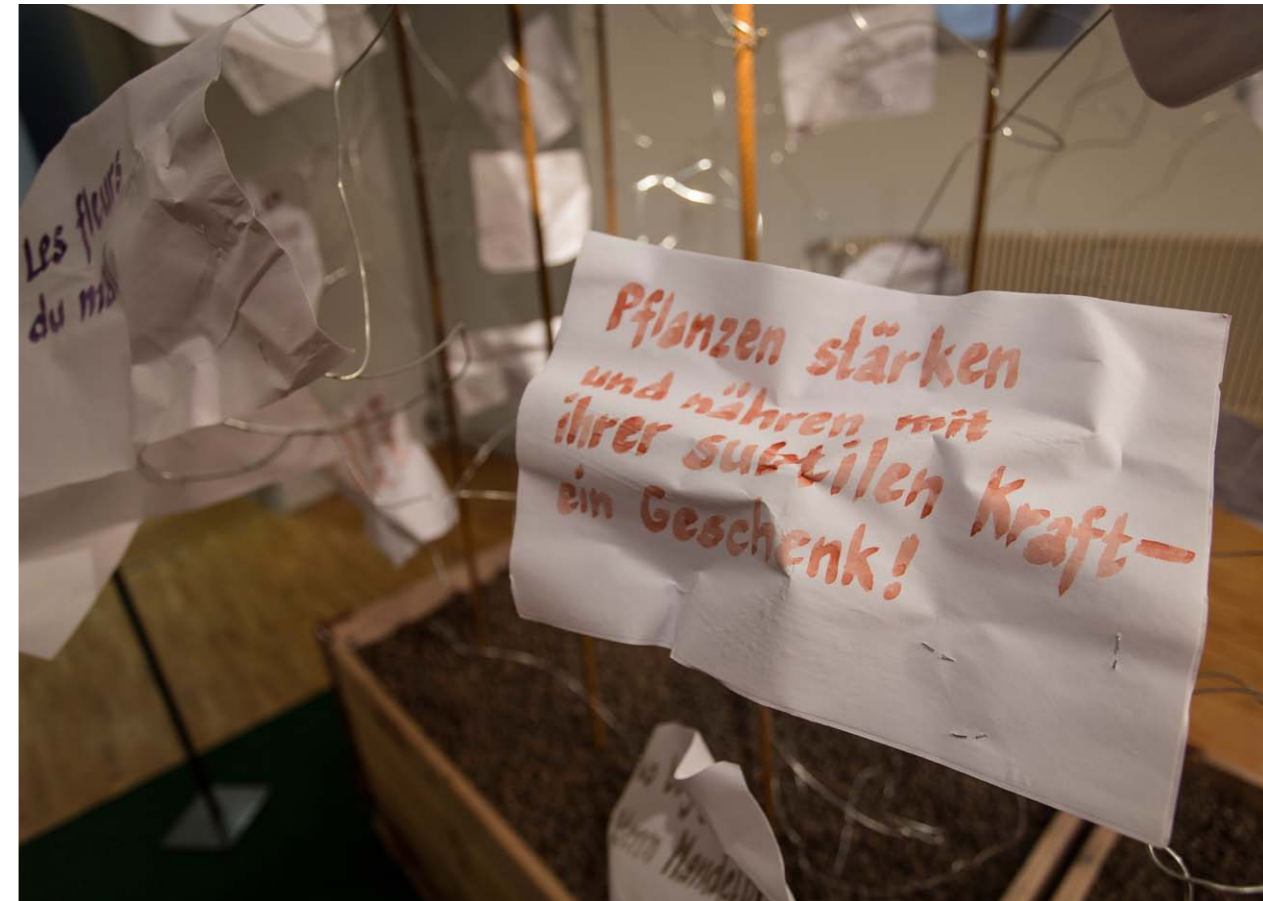 Les fleurs
du mal
Pflanzen stärken
und nähren mit
ihrer subtilen Kraft-
ein Geschenk!